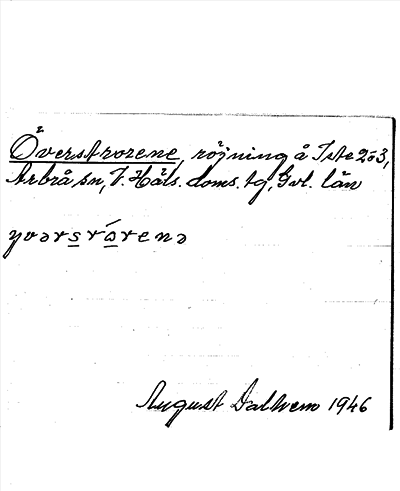 Överstrorene, röjning å Iste 2 o 3,
Arbrå sn, V. Häls. doms. tg, Gvl. län
yvərsrɷ́renə
August Dalhem 1946